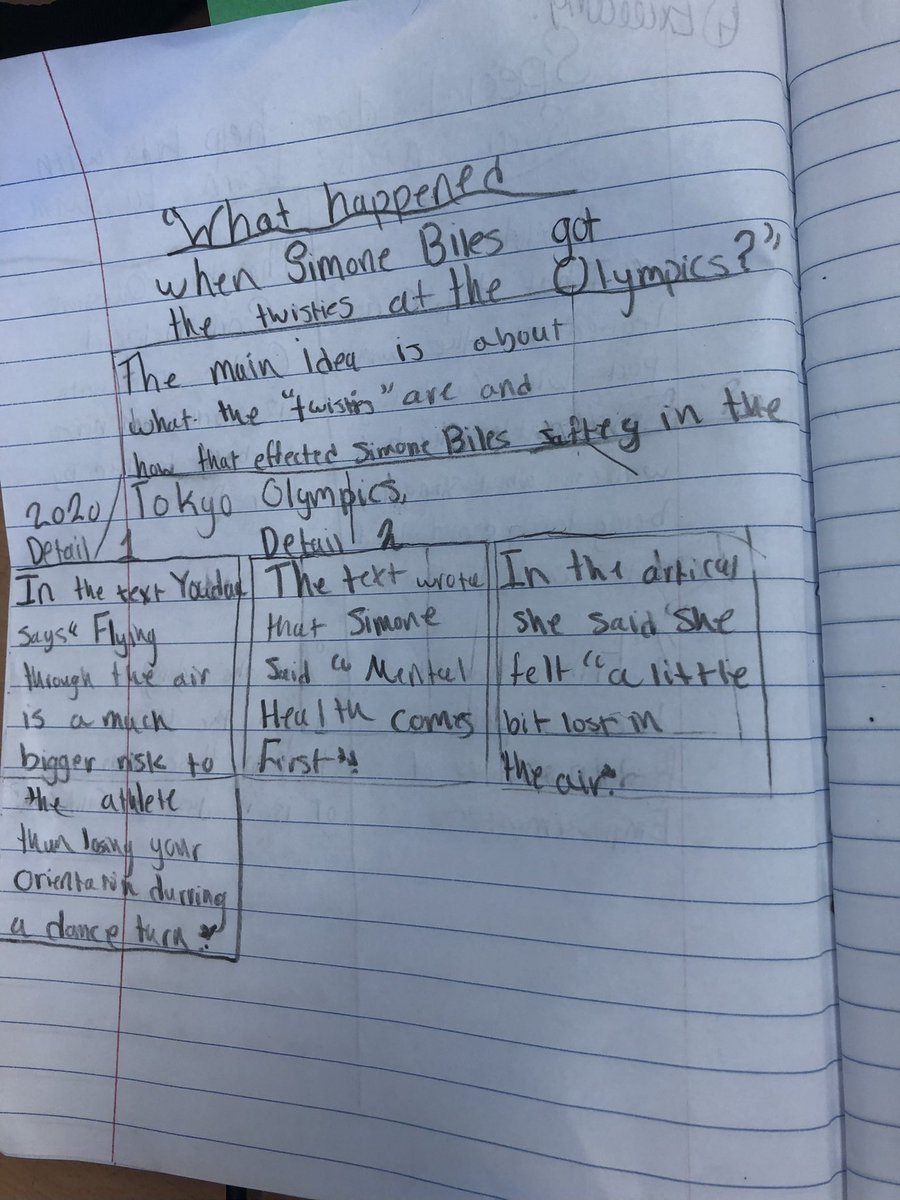 "What happened
when Simone Biles got
the twisties at the Olympics?"
The main idea is about
what the "twisties" are and
how that effected Simone Biles in the
2020 Tokyo Olympics.
Detail 1
In the text
says "Flying
through the air
is a much
bigger risk to
the athlete
than losing your
during
a dance turn."
Detail 2
The text wrote
that Simone
Said "Mental
Health comes
First"
In the artical
she said she
felt "a little
bit lost in
the air."